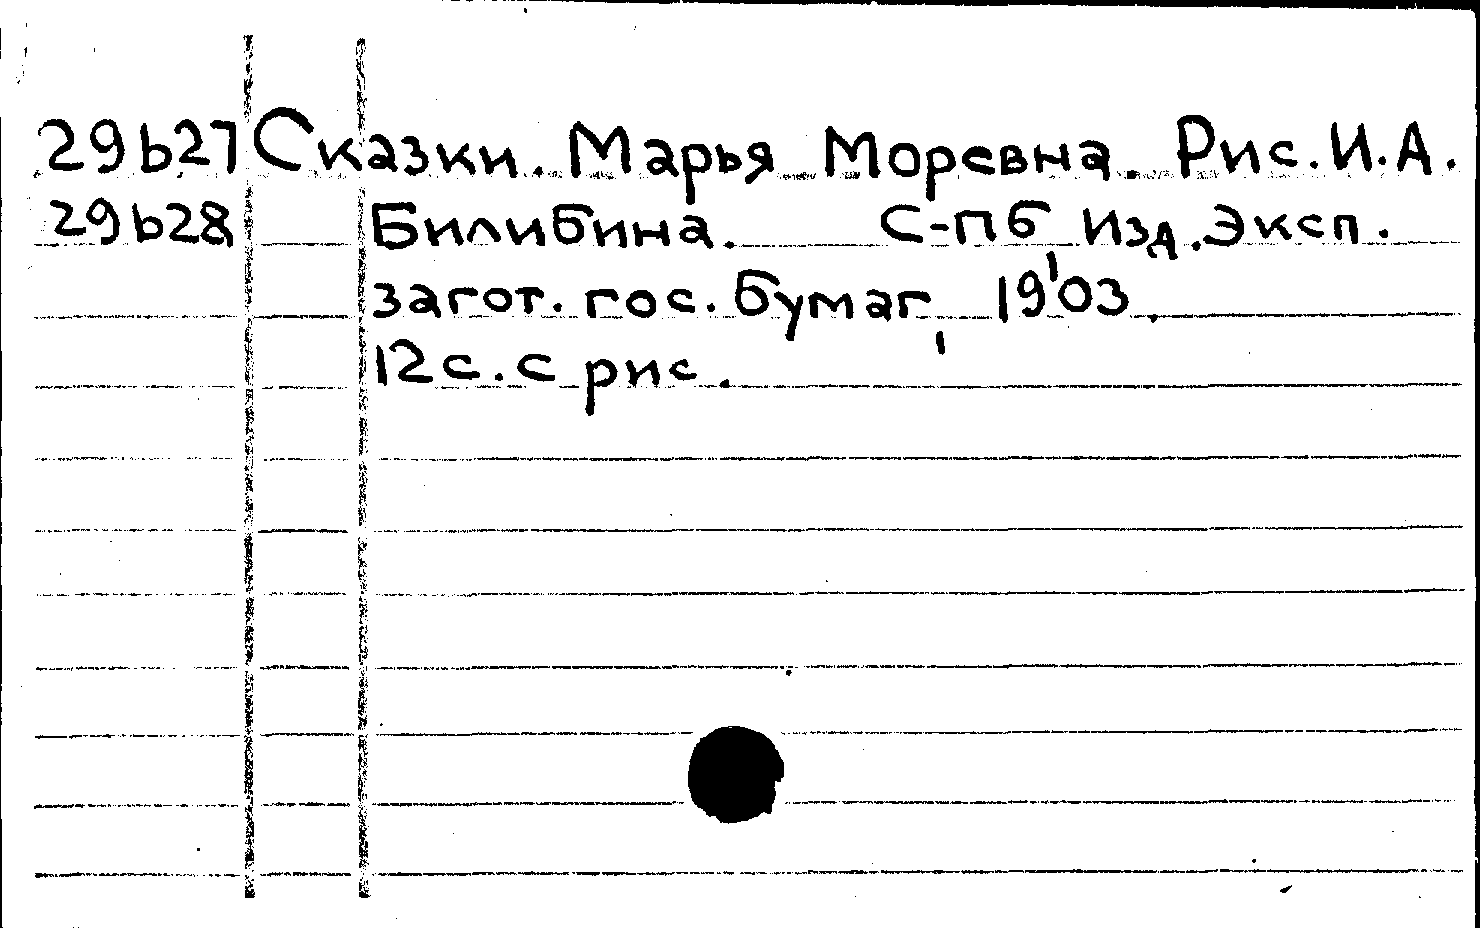 29b27 Сказки. Марья Моревна. Рис. И.А.
29b28 Билибина. С-Пб, Изд. Эксп.
загот. гос. бумаг, 1903.
12с. с рис.